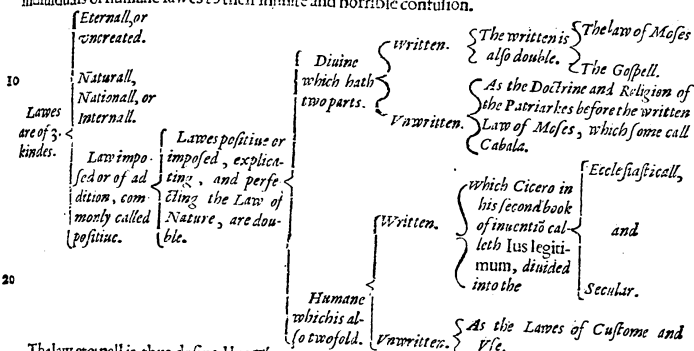 individuals of humane lawes to their infinite and horrible confusion.
10
20
Lawes
are of 3.
kindes.
Eternall, or
vncreated.
Naturall,
Nationall, or
Internall.
Law impo-
sed or of ad
dition, com-
monly called
positiue.
Lawes positiue or
imposed, explica-
ting, and perfe-
cting the Law of
Nature, are dou-
ble.
Diuine
which hath
two parts.
Written.
The written is
also double.
The law of Moses
The Gospell.
Vnwritten.
As the Doctrine and Religion of
the Patriarkes before the written
Law of Moses, which some call
Cabala.
Humane
which is al-
so twofold.
Written.
Which Cicero in
his second book
of inuentiõ cal-
leth Ius legiti-
mum, diuided
into the
Ecclesiasticall,
and
Secular.
Vnwritten.
As the Lawes of Custome and
Vse.
The law eternall is thus